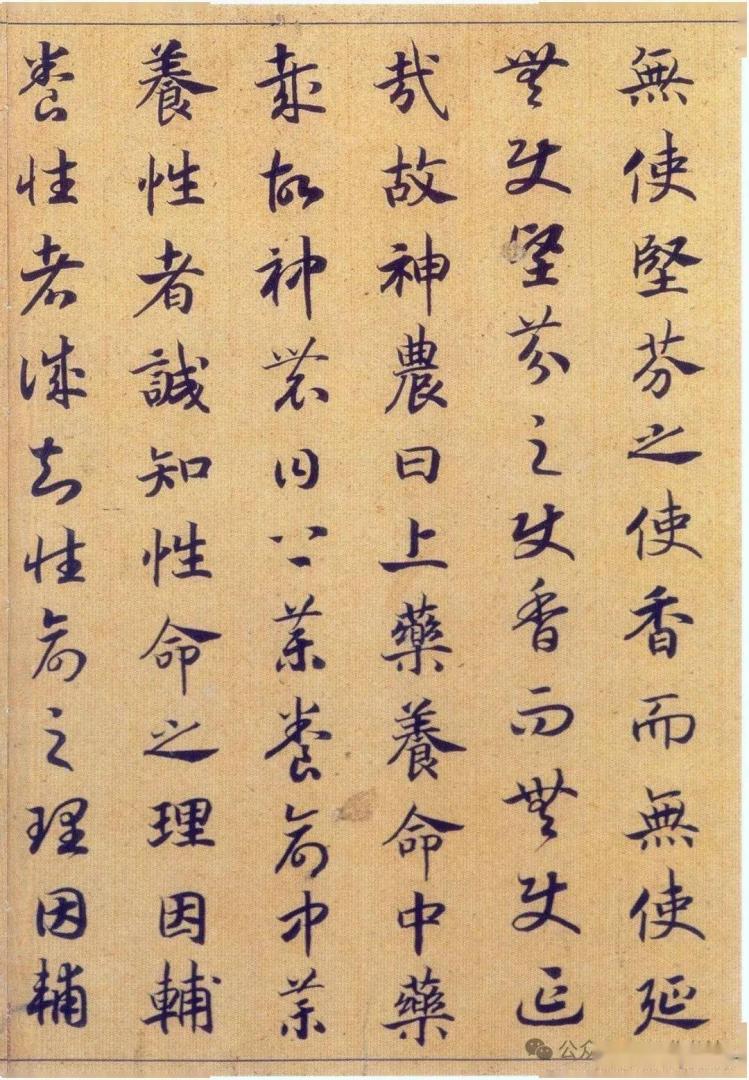 無使堅芬之使香而無使延
無使堅芬之使香而無使延
哉故神農曰上藥養命中藥
哉故神農曰上藥養命中藥
養性者誠知性命之理因輔
養性者誠知性命之理因輔
公众